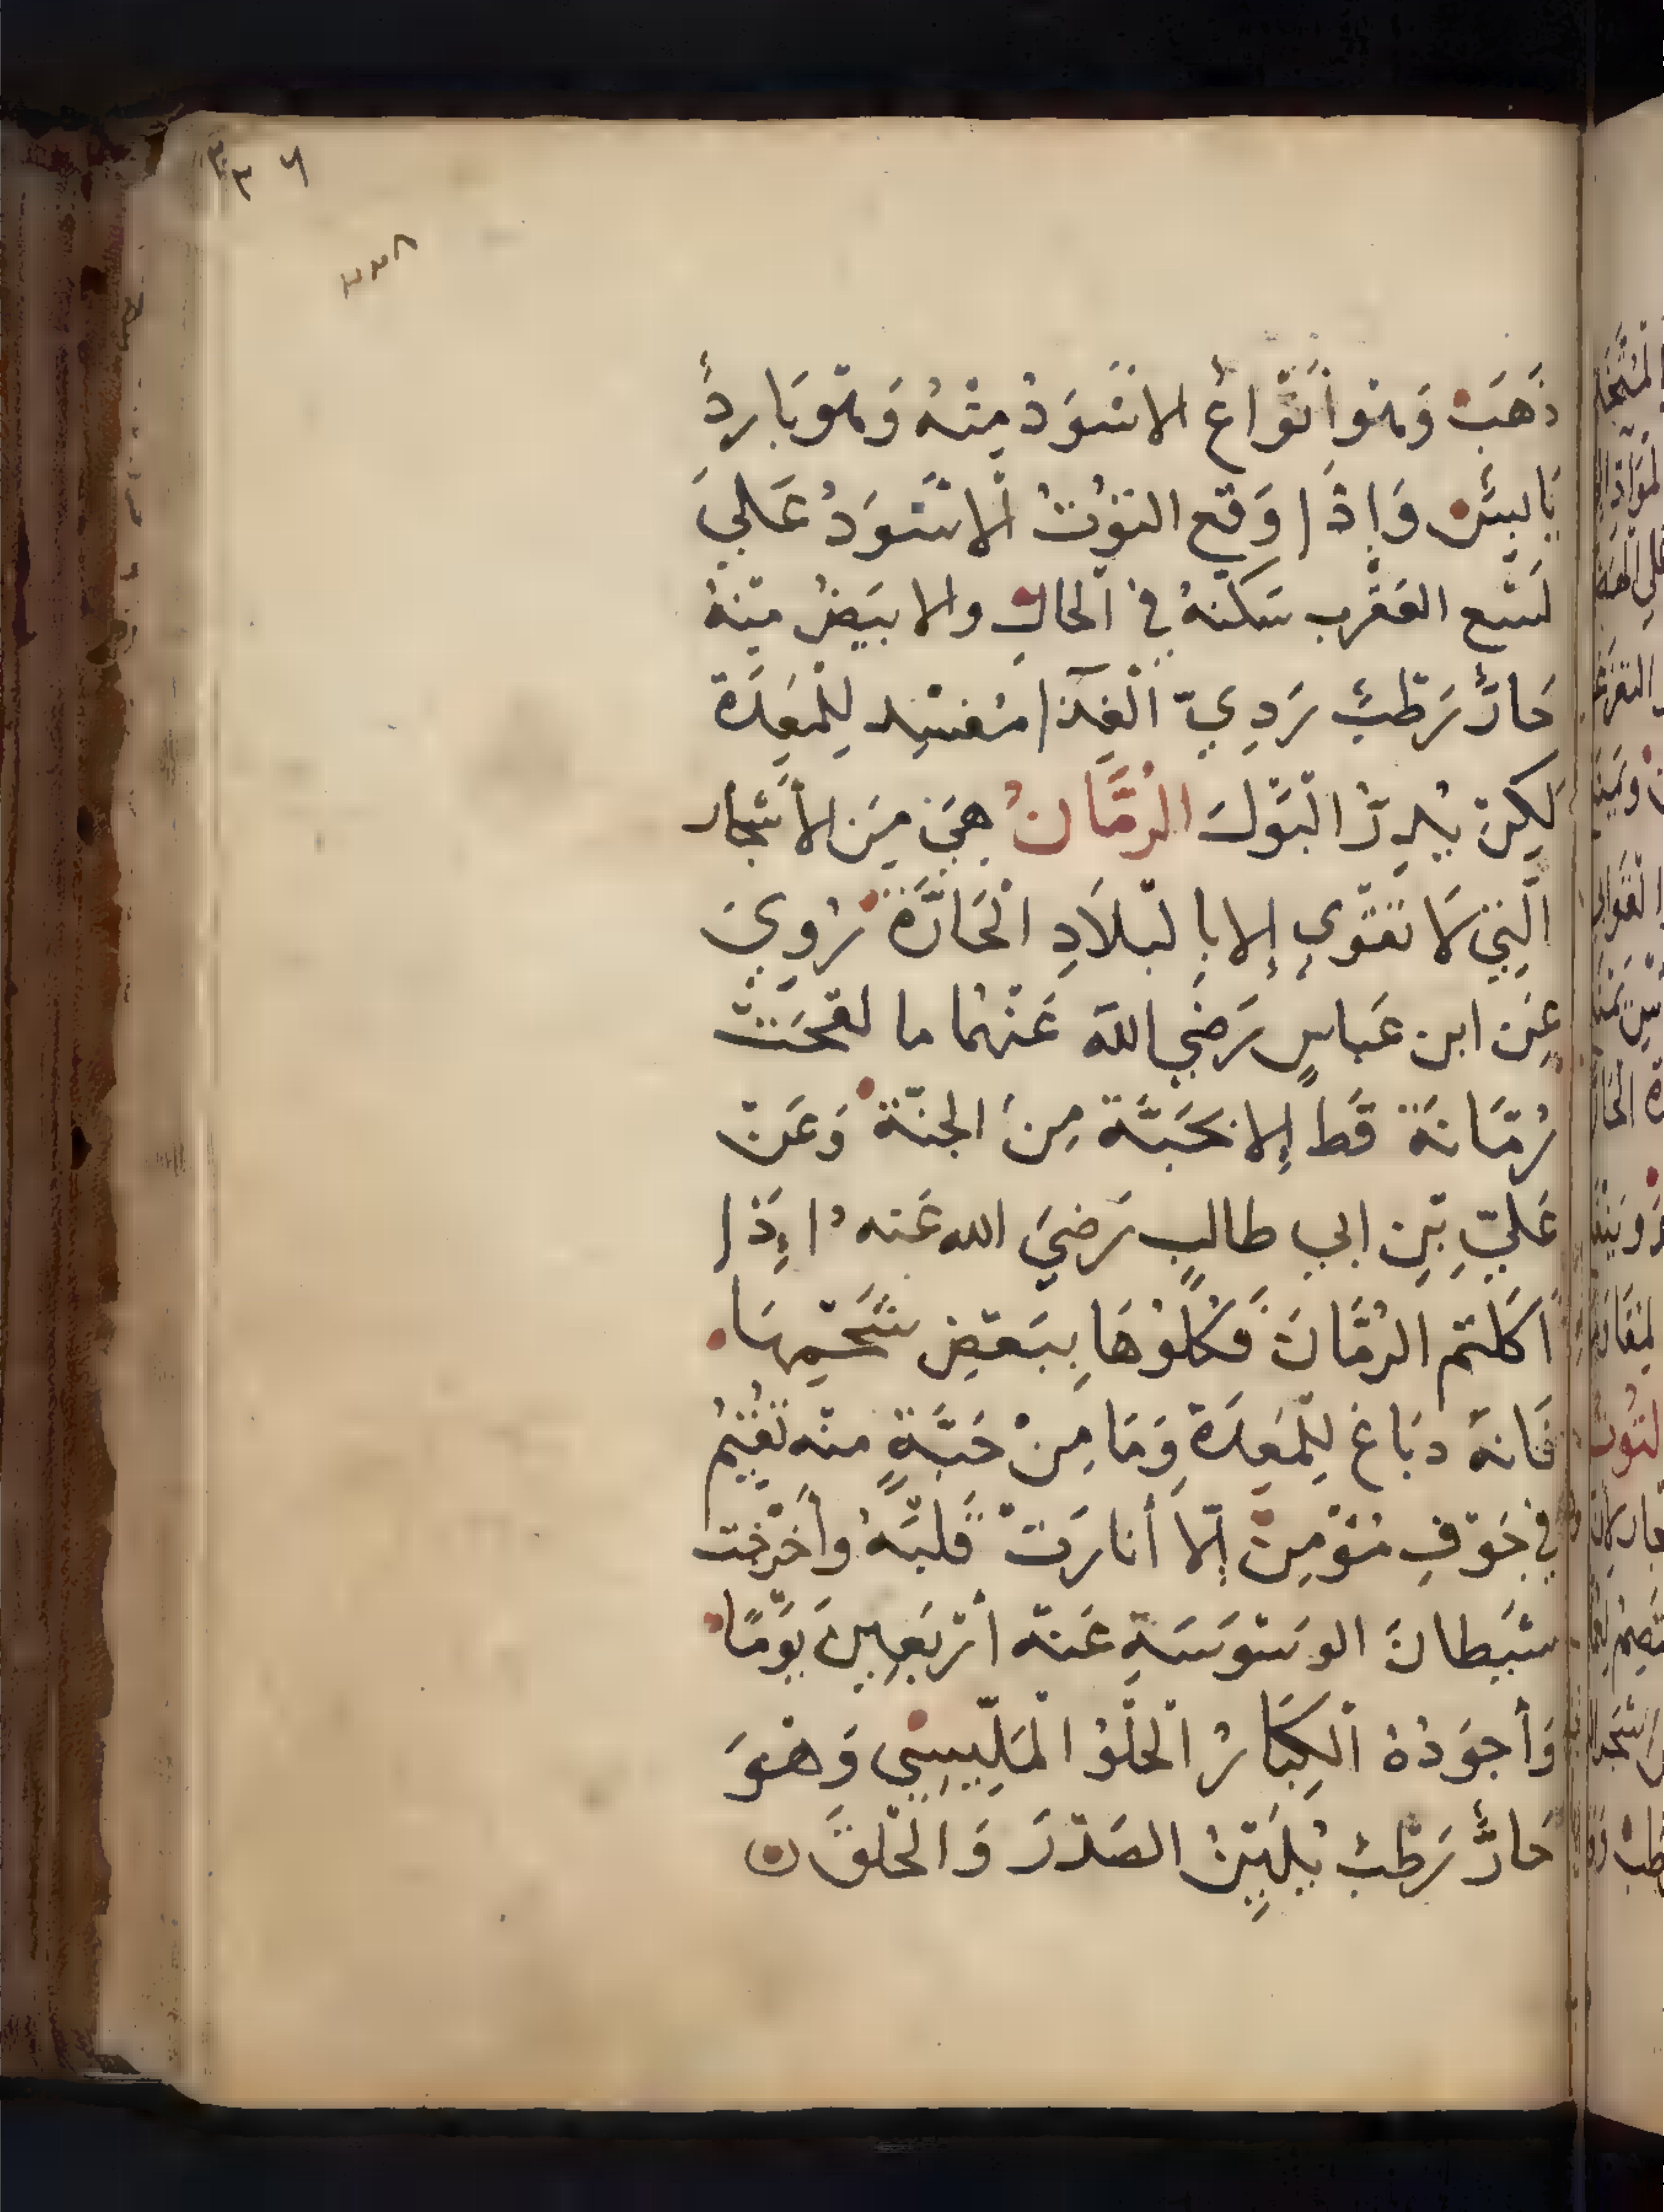 ٣٣٦
٣٣٨
ذَهَبَ وَهُوَ أَنْوَاعٌ الاسْوَدُ مِنْهُ وَهُوَ بَارِدٌ
يَابِسٌ وَإِذَا وَقَعَ التوُتُ الْاسْوَدُ عَلَي
لَسْع العَقْرب سَكّنهُ فِي الْحَالِ والابيَضُ مِنْهُ
حَارٌّ رَطْبٌ رَدِيّ الْغِذَآا مُفْسِد لِلْمَعِدَة
لَكِنْ يُدِرُّ الْبَوْلَ الرُمَّانُ هِيَ مِنَ الأَشْجَار
الّتِي لَا تَقْوَى إِلا بِالبْلَادِ الْحَارَّةِ رُوِيَ
عَن ابن عَباسٍ رَضِي اللهُ عَنْهُمَا ما لقحَتْ
رُمّانَة قَط إِلا بحَبَّة مِنَ الجنّة وَعَنْ
عَلِيّ بْنِ ابي طالبٍ رَضيَ الله عَنه ُ اِذَا
أكَلتُم الرُمَّانَ فَكُلُوْهَا بِبَعْضِ شَحْمِهَا
فَانهُ دبَاغ لِلْمَعِدَة وَمَا مِنْ حَبَّةٍ منْه تُقيْمُ
فِي جَوْفِ مُؤْمِنٍ إِلّا أَنارَتْ قَلْبَهُ وأَخْرَجَت
شَيطانَ الوسْوَسَةِ عَنهُ أَرْبَعِينَ يَوْمًا
وَأَجوَدُهُ الْكِبَارُ الْحُلْوُ الْمَلِّيسِيْ وَهْوَ
حَارٌّ رَطْبٌ يُلَيِّنُ الصَدْرَ وَالْحَلْقَ ن